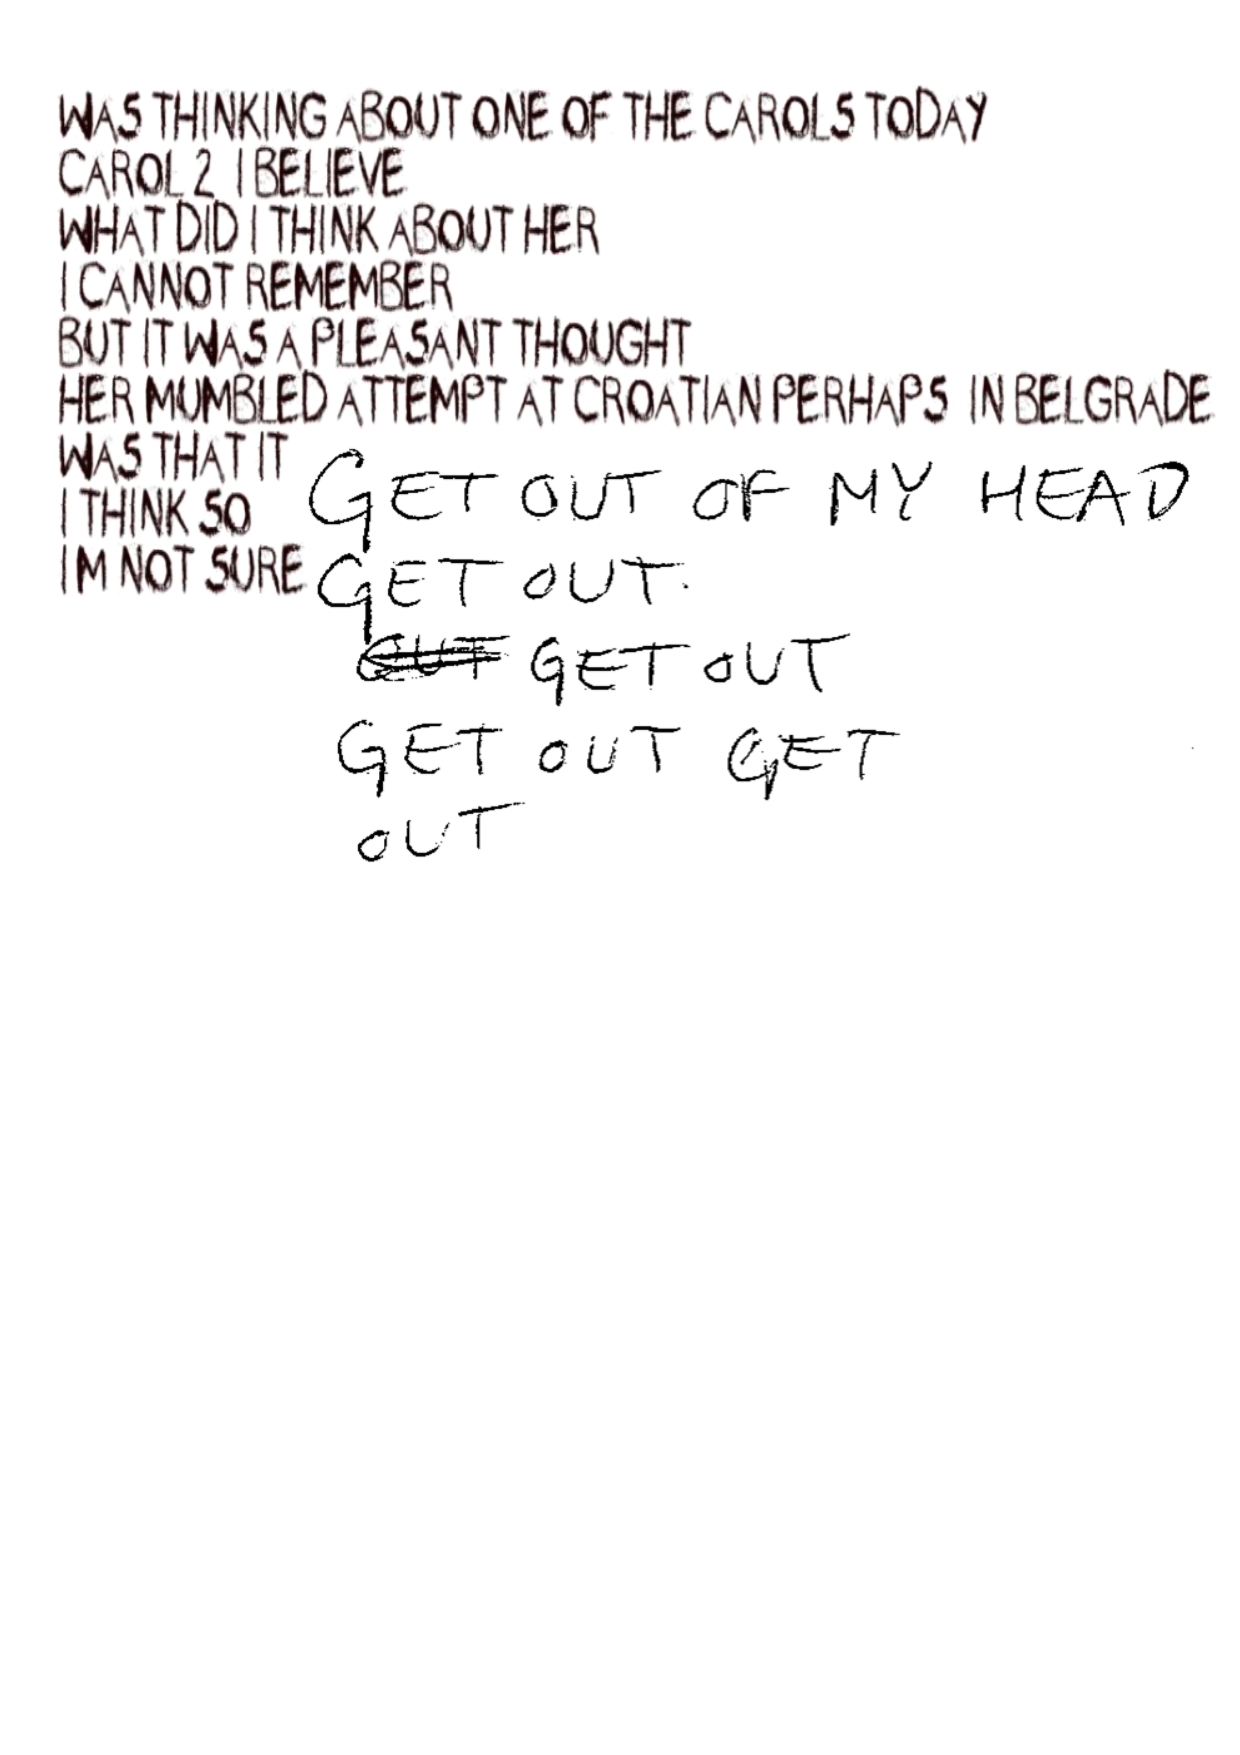 WAS THINKING ABOUT ONE OF THE CAROLS TODAY
CAROL 2 I BELIEVE
WHAT DID I THINK ABOUT HER
I CANNOT REMEMBER
BUT IT WAS A PLEASANT THOUGHT
HER MUMBLED ATTEMPT AT CROATIAN PERHAPS IN BELGRADE
WAS THAT IT
I THINK SO
IM NOT SURE
GET OUT OF MY HEAD
GET OUT.
OUT GET OUT
GET OUT GET
OUT